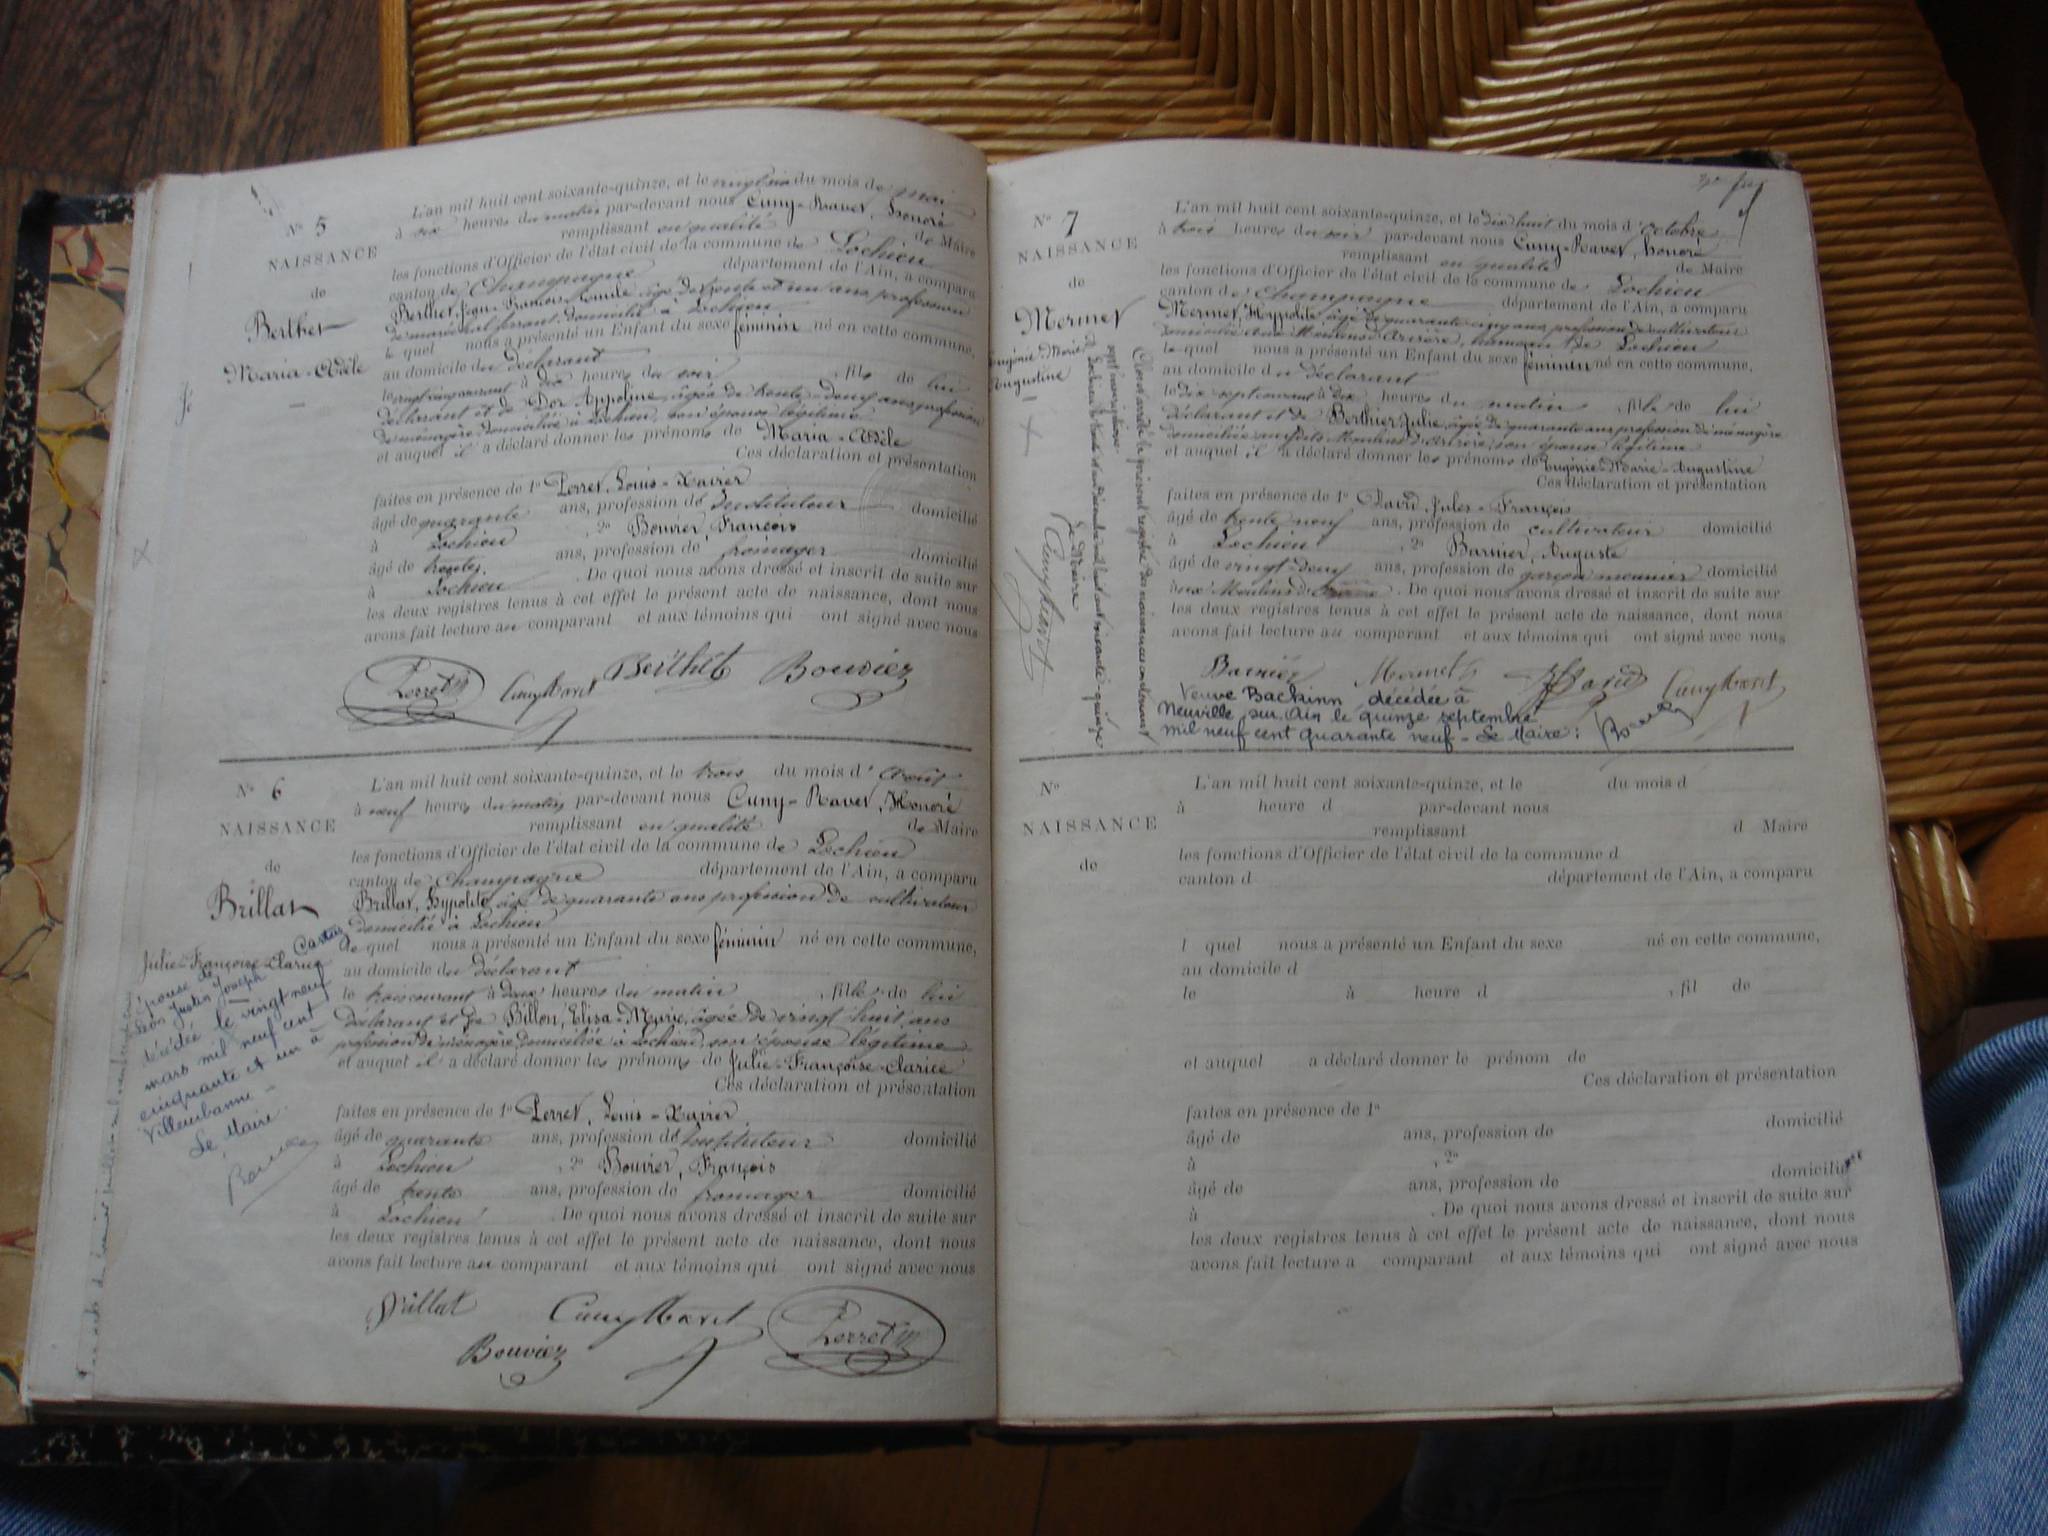 N° 5
NAISSANCE
de
Berthet
Maria-Adèle
L'an mil huit cent soixante-quinze, et le vingt six du mois de mai
à six heures du matin par-devant nous Cuny-Ravet, Honoré
remplissant en qualité de Maire
les fonctions d'Officier de l'état civil de la commune de Lochieu
canton de Champagne département de l'Ain, a comparu
Berthet, Jean-François, Emile âgé de trente et un ans profession
de maréchal ferrant domicilié à Lochieu
le quel nous a présenté un Enfant du sexe féminin né en cette commune,
au domicile du déclarant
le vingt cinq courant à dix heures du soir, fils de lui
déclarant et de Dor Appoline, âgée de trente-deux ans profession
de ménagère domiciliée à Lochieu, son épouse légitime
et auquel il a déclaré donner les prénoms de Maria-Adèle
Ces déclaration et présentation
faites en présence de 1° Perret, Louis-Xavier
âgé de quarante ans, profession de Instituteur domicilié
à Lochieu, 2° Bouvier, François
âgé de trente ans, profession de fromager domicilié
à Lochieu. De quoi nous avons dressé et inscrit de suite sur
les deux registres tenus à cet effet le présent acte de naissance, dont nous
avons fait lecture au comparant et aux témoins qui ont signé avec nous
Perret Cuny Ravet Berthet Bouvier
N° 6
NAISSANCE
de
Brillat
Julie-Françoise-Clarice
épouse de
Léon Justin Joseph
décédée le vingt neuf
mars mil neuf cent
cinquante et un à
Villeurbanne -
Le Maire
L'an mil huit cent soixante-quinze, et le trois du mois d'Août
à neuf heures du matin par-devant nous Cuny-Ravet, Honoré
remplissant en qualité de Maire
les fonctions d'Officier de l'état civil de la commune de Lochieu
canton de Champagne département de l'Ain, a comparu
Brillat, Hypolite âgé de quarante ans profession de cultivateur
domicilié à Lochieu
le quel nous a présenté un Enfant du sexe féminin né en cette commune,
au domicile du déclarant
le trois courant à deux heures du matin, fille de lui
déclarant et de Billon, Elisa-Marie, âgée de vingt huit ans
profession de ménagère domiciliée à Lochieu, son épouse légitime
et auquel il a déclaré donner les prénoms de Julie-Françoise-Clarice
Ces déclaration et présentation
faites en présence de 1° Perret, Louis-Xavier
âgé de quarante ans, profession de Instituteur domicilié
à Lochieu, 2° Bouvier, François
âgé de trente ans, profession de fromager domicilié
à Lochieu. De quoi nous avons dressé et inscrit de suite sur
les deux registres tenus à cet effet le présent acte de naissance, dont nous
avons fait lecture au comparant et aux témoins qui ont signé avec nous
Brillat Cuny Ravet Perret
Bouvier
N° 7
NAISSANCE
de
Mermet
Eugénie-Marie
Augustine
L'an mil huit cent soixante-quinze, et le dix huit du mois d'Octobre
à trois heures du soir par-devant nous Cuny-Ravet, Honoré
remplissant en qualité de Maire
les fonctions d'Officier de l'état civil de la commune de Lochieu
canton de Champagne département de l'Ain, a comparu
Mermet, Hypolite âgé de quarante-cinq ans, profession de cultivateur
domicilié aux Moulins d'Arvière, hameau de Lochieu
le quel nous a présenté un Enfant du sexe féminin né en cette commune,
au domicile du déclarant
le dix sept courant à dix heures du matin, fille de lui
déclarant et de Berthier Julie, âgée de quarante ans profession de ménagère
domiciliée auxdits Moulins d'Arvière, son épouse légitime
et auquel il a déclaré donner les prénoms de Eugénie-Marie-Augustine
Ces déclaration et présentation
faites en présence de 1° David, Jules-François
âgé de trente neuf ans, profession de cultivateur domicilié
à Lochieu, 2° Barnier, Auguste
âgé de vingt-deux ans, profession de garçon meunier domicilié
aux Moulins d'Arvière. De quoi nous avons dressé et inscrit de suite sur
les deux registres tenus à cet effet le présent acte de naissance, dont nous
avons fait lecture au comparant et aux témoins qui ont signé avec nous
Barnier Mermet David Cuny Ravet
Veuve Backinn décédée à
Neuville sur Ain le quinze septembre
mil neuf cent quarante neuf - Le Maire:
Clos et arrêté le présent registre des naissances contenant
sept inscriptions
A Lochieu le trente et un décembre mil huit cent soixante-quinze
Le Maire
Cuny Ravet
N°
NAISSANCE
de
L'an mil huit cent soixante-quinze, et le du mois d
à heure d par-devant nous
remplissant d Maire
les fonctions d'Officier de l'état civil de la commune d
canton d département de l'Ain, a comparu
l quel nous a présenté un Enfant du sexe né en cette commune,
au domicile d
le à heure d , fil de
et auquel a déclaré donner le prénom de
Ces déclaration et présentation
faites en présence de 1°
âgé de ans, profession de domicilié
à , 2°
âgé de ans, profession de domicilié
à . De quoi nous avons dressé et inscrit de suite sur
les deux registres tenus à cet effet le présent acte de naissance, dont nous
avons fait lecture a comparant et aux témoins qui ont signé avec nous